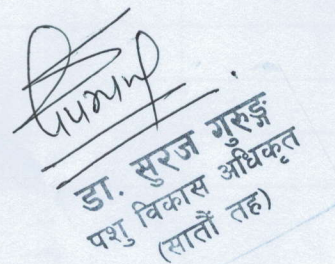 डा. सुरज गुरुङ्ग
पशु विकास अधिकृत
(सातौं तह)